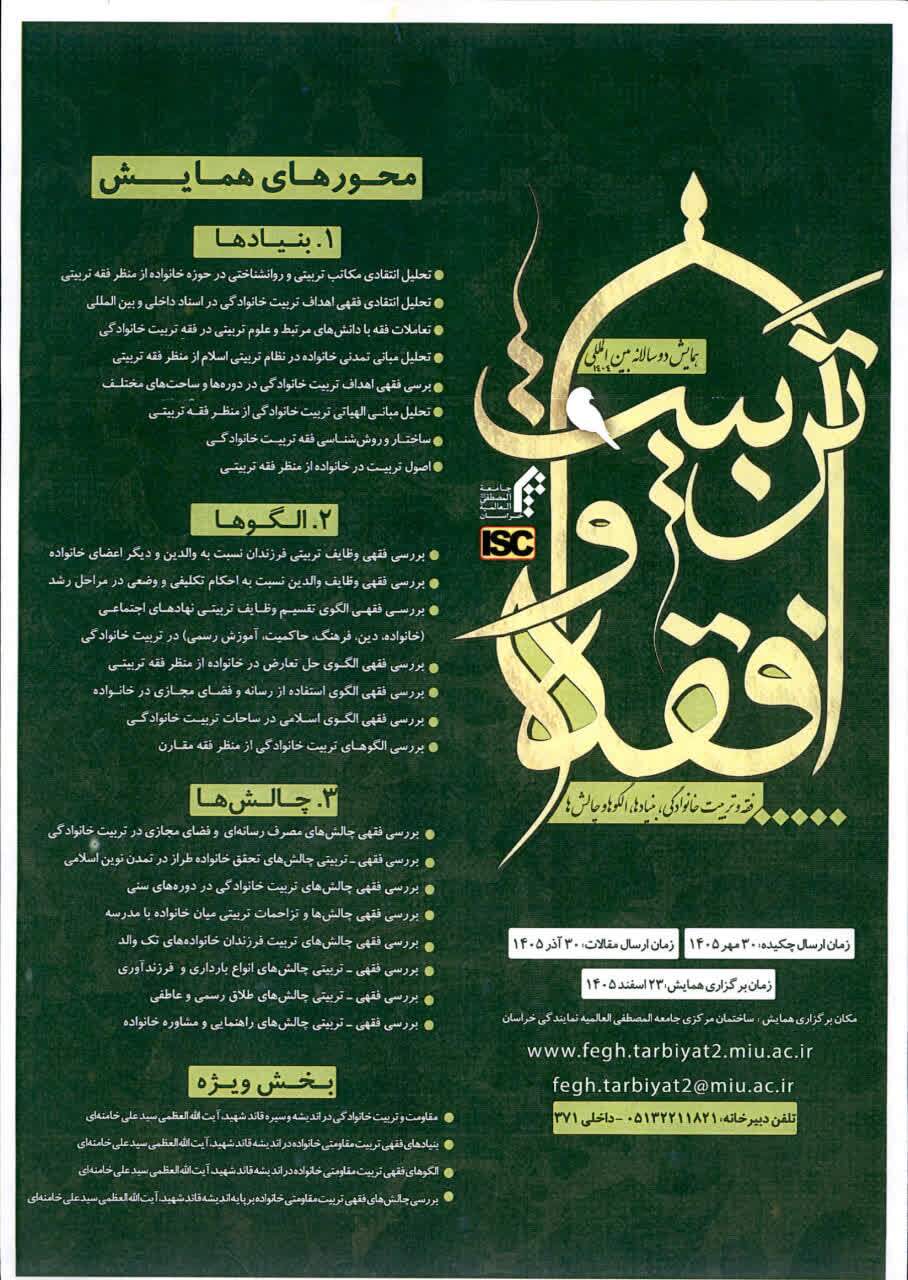 محورهای همایش
۱. بنیادها
تحلیل انتقادی مکاتب تربیتی و روانشناختی در حوزه خانواده از منظر فقه تربیتی
تحلیل انتقادی فقهی اهداف تربیت خانوادگی در اسناد داخلی و بین المللی
تعاملات فقه با دانش‌های مرتبط و علوم تربیتی در فقه تربیت خانوادگی
تحلیل مبانی تمدنی خانواده در نظام تربیتی اسلام از منظر فقه تربیتی
برسی فقهی اهداف تربیت خانوادگی در دوره‌ها و ساحت‌های مختلف
تحلیل مبانی الهیاتی تربیت خانوادگی از منظر فقه تربیتی
ساختار و روش‌شناسی فقه تربیت خانوادگی
اصول تربیت در خانواده از منظر فقه تربیتی
۲. الگوها
بررسی فقهی وظایف تربیتی فرزندان نسبت به والدین و دیگر اعضای خانواده
بررسی فقهی وظایف والدین نسبت به احکام تکلیفی و وضعی در مراحل رشد
بررسی فقهی الگوی تقسیم وظایف تربیتی نهادهای اجتماعی
(خانواده، دین، فرهنگ، حاکمیت، آموزش رسمی) در تربیت خانوادگی
بررسی فقهی الگوی حل تعارض در خانواده از منظر فقه تربیتی
بررسی فقهی الگوی استفاده از رسانه و فضای مجازی در خانواده
بررسی فقهی الگوی اسلامی در ساحات تربیت خانوادگی
بررسی الگوهای تربیت خانوادگی از منظر فقه مقارن
۳. چالش‌ها
بررسی فقهی چالش‌های مصرف رسانه‌ای و فضای مجازی در تربیت خانوادگی
بررسی فقهی ـ تربیتی چالش‌های تحقق خانواده طراز در تمدن نوین اسلامی
بررسی فقهی چالش‌های تربیت خانوادگی در دوره‌های سنی
بررسی فقهی چالش‌ها و تزاحمات تربیتی میان خانواده با مدرسه
بررسی فقهی چالش‌های تربیت فرزندان خانواده‌های تک والد
بررسی فقهی ـ تربیتی چالش‌های انواع بارداری و فرزندآوری
بررسی فقهی ـ تربیتی چالش‌های طلاق رسمی و عاطفی
بررسی فقهی ـ تربیتی چالش‌های راهنمایی و مشاوره خانواده
بخش ویژه
مقاومت و تربیت خانوادگی در اندیشه و سیره قائد شهید، آیت الله العظمی سید علی خامنه‌ای
بنیادهای فقهی تربیت مقاومتی خانواده در اندیشه قائد شهید، آیت الله العظمی سید علی خامنه‌ای
الگوهای فقهی تربیت مقاومتی خانواده در اندیشه قائد شهید، آیت الله العظمی سید علی خامنه‌ای
بررسی چالش‌های فقهی تربیت مقاومتی خانواده بر پایه اندیشه قائد شهید، آیت الله العظمی سید علی خامنه‌ای
همایش دوسالانه بین المللی
۱۴۰۴
فقه و تربیت
جامعة
المصطفی
العالمیة
خراسان
ISC
فقه و تربیت خانوادگی، بنیادها، الگوها و چالش ها
زمان ارسال چکیده: ۳۰ مهر ۱۴۰۵
زمان ارسال مقالات: ۳۰ آذر ۱۴۰۵
زمان برگزاری همایش: ۲۳ اسفند ۱۴۰۵
مکان برگزاری همایش : ساختمان مرکزی جامعه المصطفی العالمیه نمایندگی خراسان
www.fegh.tarbiyat2.miu.ac.ir
fegh.tarbiyat2@miu.ac.ir
تلفن دبیرخانه: ۰۵۱۳۲۲۱۱۸۲۱ - داخلی ۳۷۱